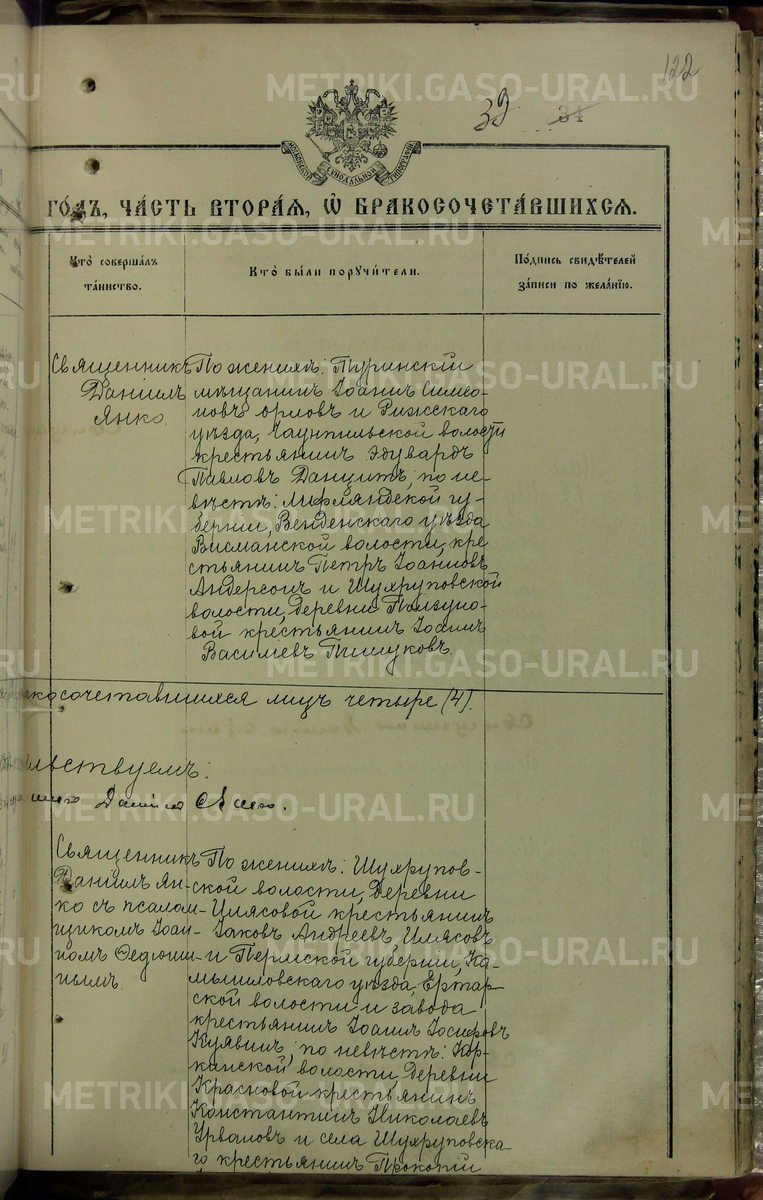 122
39 31
МОСКОВСКОЙ СѴНОДАЛЬНОЙ ТИПОГРАФІИ
ГО́ДЪ, ЧА́СТЬ ВТОРА́Я, Ѡ҆ БРАКОСОЧЕТА́ВШИХСЯ.
Кто̀ соверша́лъ
та́инство.
Кто̀ бы́ли порꙋчи́тели.
По́дпись свидѣ́телей
за́писи по жела́нїю.
Священникъ
Даніилъ
Янко.
По женихѣ: Туринскій
мѣщанинъ Іоаннъ Симео-
новъ Орловъ и Рижскаго
уѣзда, волости
крестьянинъ Эдуардъ
Павловъ Данцитъ; по не-
вѣстѣ: Лифляндской гу-
берніи, Венденскаго уѣзда
Висманской волости, кре-
стьянинъ Петръ Іоанновъ
Андерсонъ и Шухруповской
волости, деревни Ползуно-
вой крестьянинъ Іоаннъ
Васильевъ Пищуковъ.
косочетавшихся лицъ четыре (4).
льствуемъ:
Даніилъ Янко.
Священникъ
Даніилъ Ян-
ко съ псалом-
щикомъ Іоан-
номъ Федюши-
нымъ.
По женихѣ: Шухрупов-
ской волости, деревни
Илясовой крестьянинъ
Іаковъ Андреевъ Илясовъ
и Пермской губерніи, Ка-
мышловскаго уѣзда, Ертар-
ской волости и завода
крестьянинъ Іоаннъ Іосифовъ
Куявинъ; по невѣстѣ: Кор-
кинской волости, деревни
Красновой крестьянинъ
Константинъ Николаевъ
Урвановъ и села Шухруповска-
го крестьянинъ Прокопій
METRIKI.GASO-URAL.RU